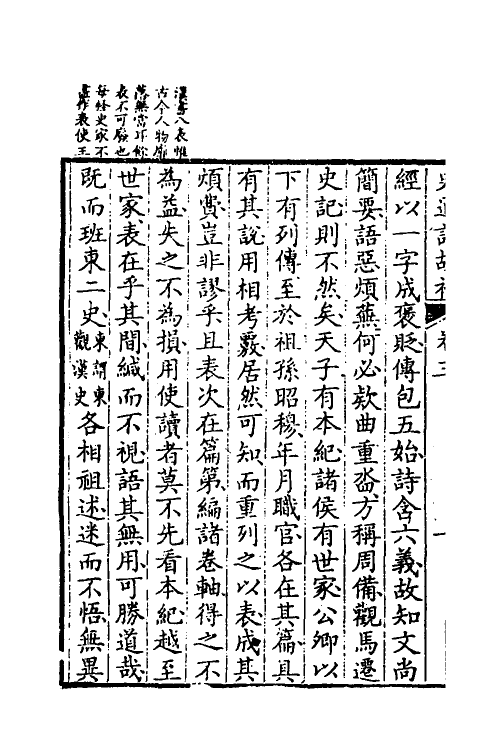 漢書八表惟
古今人物廓
落無當耳餘
表不可廢也
每終史家不
喜作表使王
史通訓故補 卷三 一
經以一字成褒貶傳包五始詩含六義故知文尚
簡要語惡煩蕪何必欵曲重沓方稱周備觀馬遷
史記則不然矣天子有本紀諸侯有世家公卿以
下有列傳至於祖孫昭穆年月職官各在其篇具
有其說用相考覈居然可知而重列之以表成其
煩費豈非謬乎且表次在篇第編諸卷軸得之不
為益失之不為損用使讀者莫不先看本紀越至
世家表在乎其間緘而不視語其無用可勝道哉
既而班東二史東謂東觀漢史各相祖述迷而不悟無異